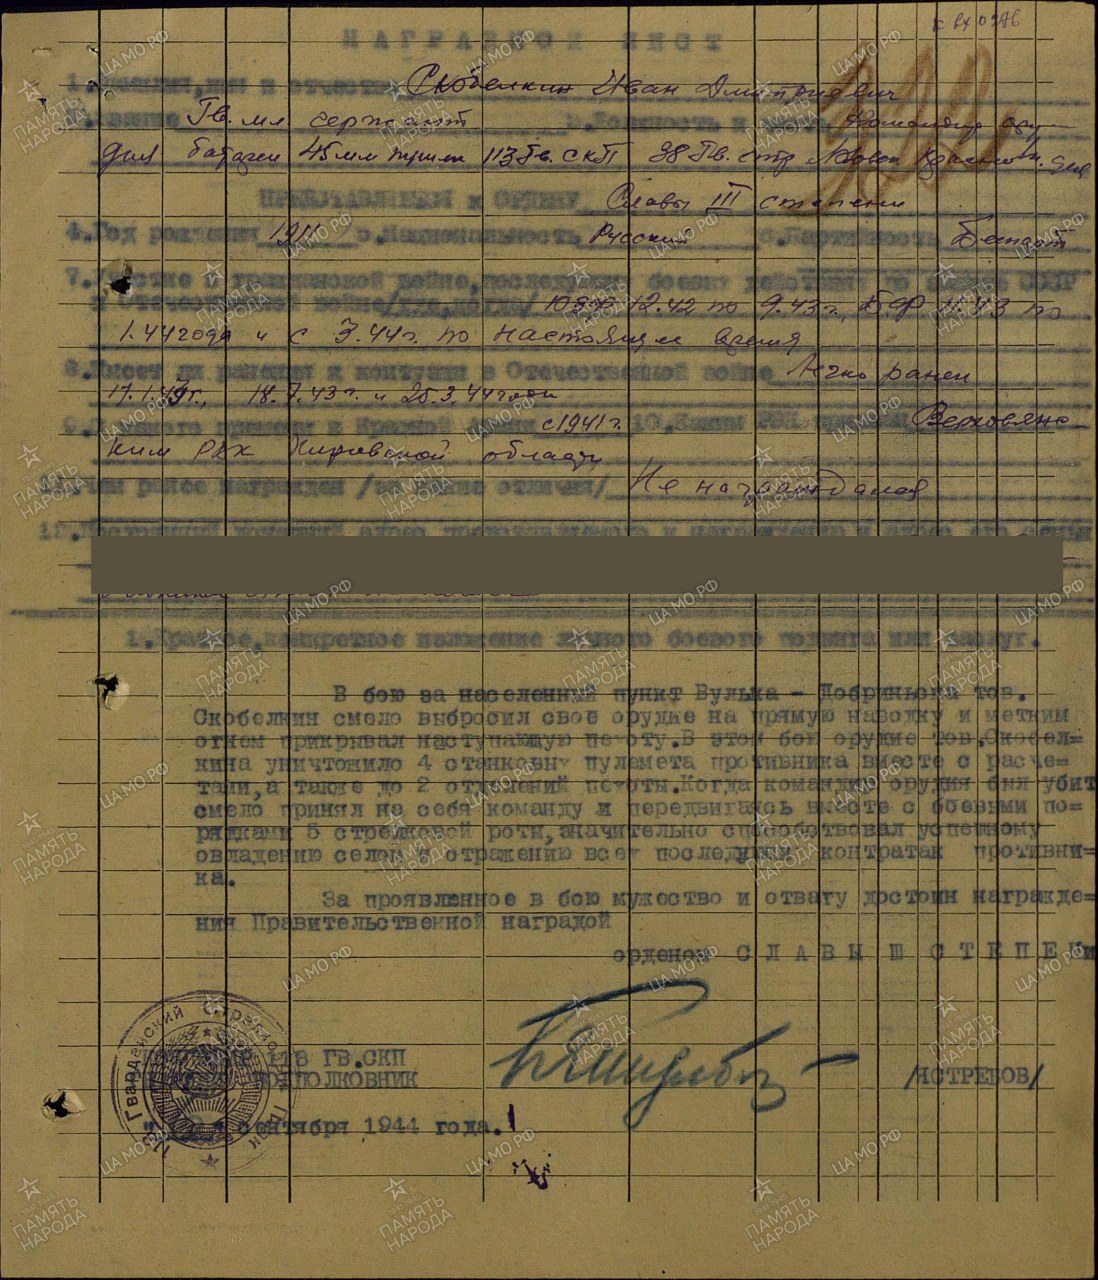 НАГРАДНОЙ ЛИСТ
1. Фамилия, имя и отчество Скобелкин Иван Дмитриевич
звание Гв. мл сержант 3. Должность и часть Командир ору-
дия батареи 45 мм пушек 113 Гв. СКП 38 Гв. стр Краснозн. див
ПРЕДСТАВЛЕН к ОРДЕНУ Славы III степени
4. Год рождения 1911 5. Национальность Русский 6. Партийность Беспарт
7. Участие в гражданской войне, последующих боевых действиях по защите СССР
и Отечественной войне /где, когда/ ЮЗФ 12.42 по 9.43 г., Б.Ф 11.43 по
1.44 года и с 3.44 г. по настоящее время
8. Имеет ли ранения и контузии в Отечественной войне Легко ранен
17.1.43 г., 18.7.43 г. и 25.3.44 года
9. С какого времени в Красной Армии с 1941 г. 10. Каким РВК призван Верховяно-
ким РВК Кировской области
чем ранее награжден /за какие отличия/ Не награждался
12. Постоянный домашний адрес представляемого к награждению и адрес его семьи
1. Краткое, конкретное изложение личного боевого подвига или заслуг.
В бою за населенный пункт Вулька - Добриньска тов.
Скобелкин смело выбросил свое орудие на прямую наводку и метким
огнем прикрывал наступающую пехоту. В этом бою орудие тов. Скобел=
кина уничтожило 4 станковых пулемета противника вместе с расче=
тами, а также до 2 отделений пехоты. Когда командир орудия был убит
смело принял на себя команду и передвигаясь вместе с боевыми по=
рядками 5 стрелковой роты, значительно способствовал успешному
овладению селом и отражению всех последующих контратак противни=
ка.
За проявленное в бою мужество и отвагу достоин награжде=
ния Правительственной наградой
орденом СЛАВЫ Ш СТЕПЕНи
КОМАНДИР 113 ГВ.СКП
ПОДПОЛКОВНИК /ЯСТРЕБОВ/
сентября 1944 года.